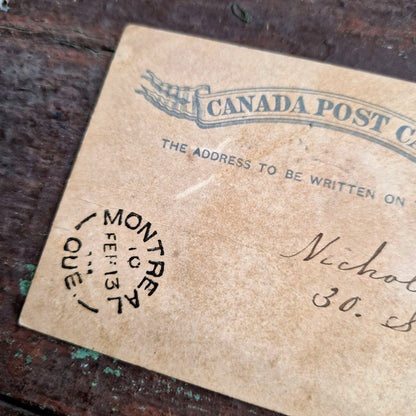 CANADA POST CA
THE ADDRESS TO BE WRITTEN ON
MONTREAL
10
FEB 13
QUE
Nichol
30. S